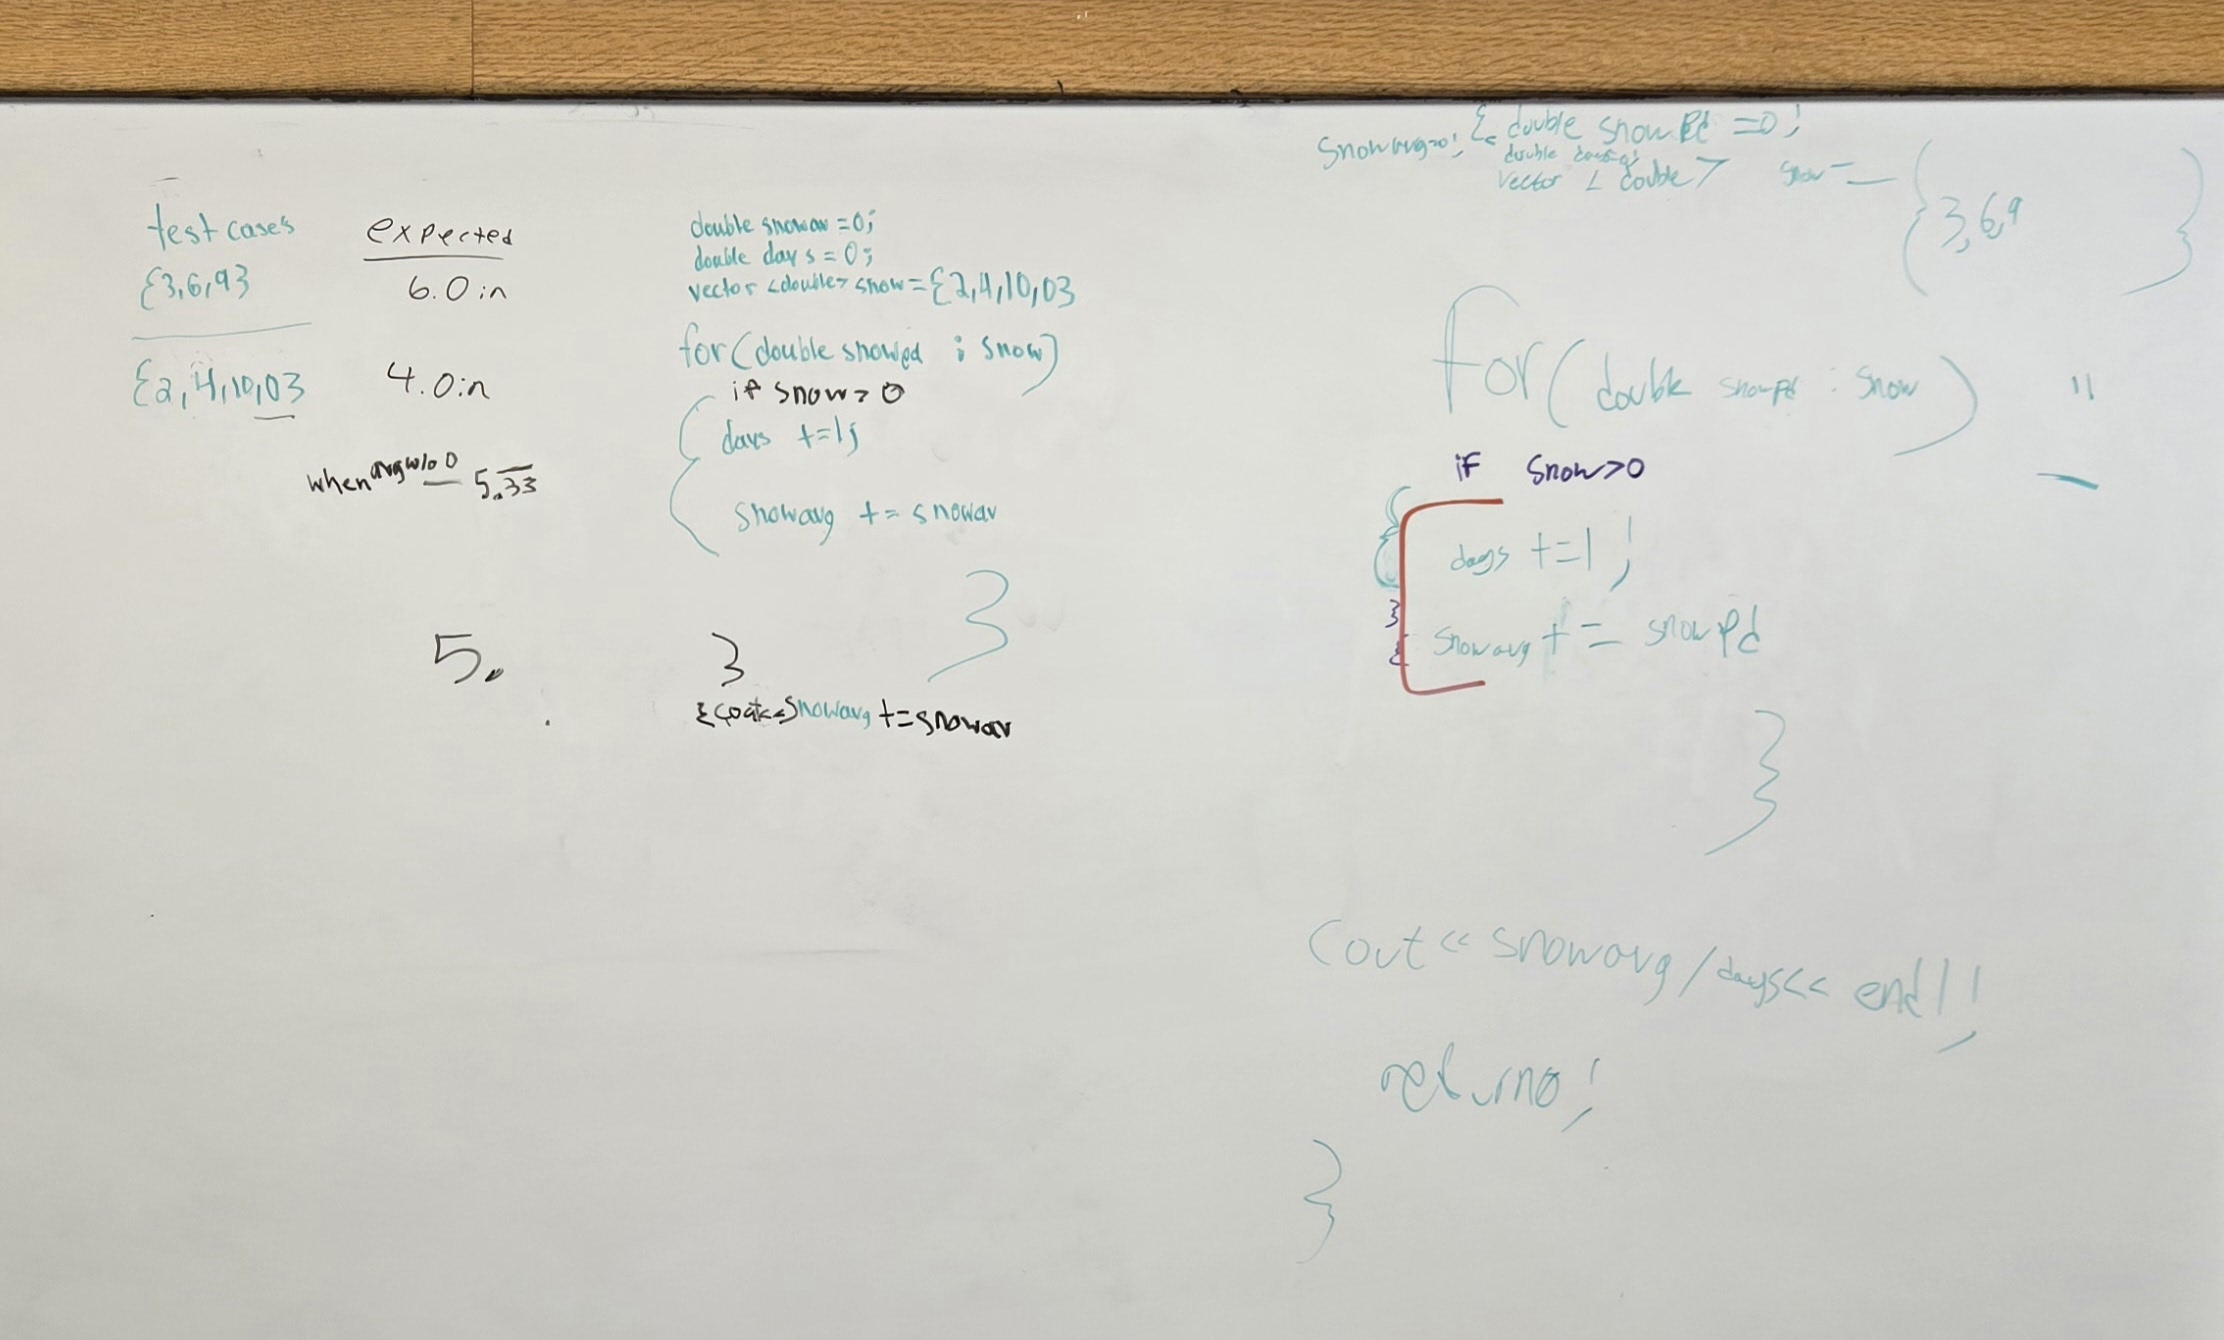 test cases
expected
{3,6,9}
6.0 in
{2,4,10,0}
4.0in
when avg w/o 0 5.33
5.
double snowav =0;
double days = 0;
vector <double> snow={2,4,10,0}
for(double snowpd : snow)
if snow > 0
{
days +=1;
{
snowavg += snowav
}
}
{cout<<snowavg +=snowav
snowavg=0; { double snowPd =0;
double days=0;
vector < double > snow = { 3,6,9 }
for( double snowPd : snow )
if snow>0
{
days +=1 ;
}
{
snowavg += snowPd
}
cout << snowavg /days<< endl;
return0;
}